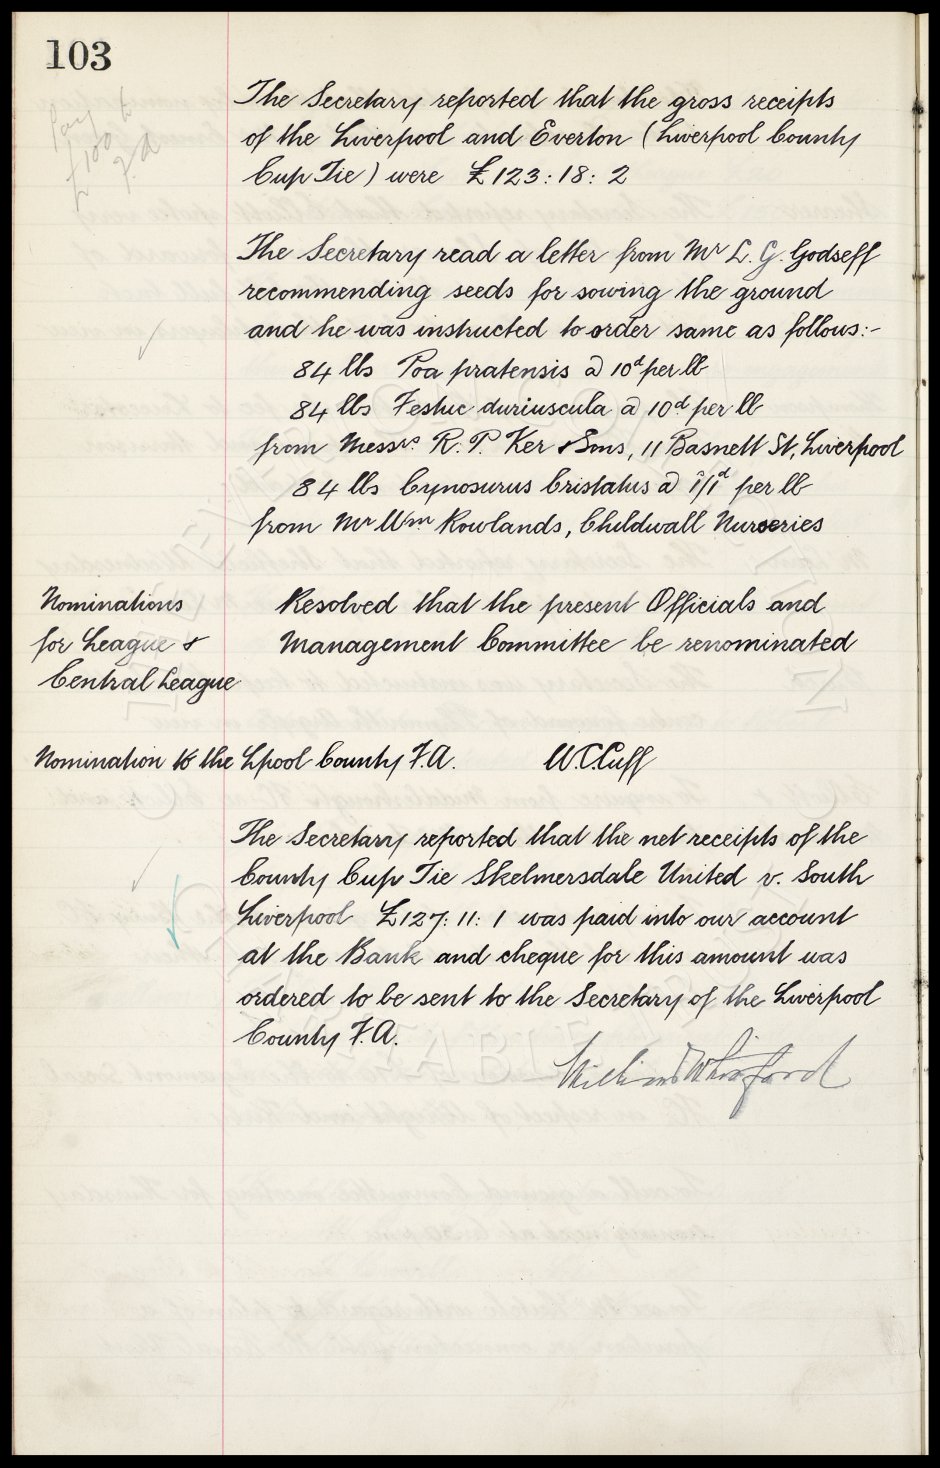 103
The Secretary reported that the gross receipts
of the Liverpool and Everton (Liverpool County
Cup Tie) were £123:18:2
The Secretary read a letter from Mr L. G. Godseff
recommending seeds for sowing the ground
and he was instructed to order same as follows:-
84 lbs Poa pratensis @ 10d per lb
84 lbs Festuc duriuscula @ 10d per lb
from Messrs. R. P. Ker & Sons, 11 Basnett St, Liverpool
84 lbs Cynosurus Cristatus @ 1/1d per lb
from Mr Wm Rowlands, Childwall Nurseries
Nominations
for League &
Central League
Resolved that the present Officials and
Management Committee be renominated
Nomination to the Lpool County F.A. W.C. Cuff
The Secretary reported that the net receipts of the
County Cup Tie Skelmersdale United v. South
Liverpool £127:11:1 was paid into our account
at the Bank and cheque for this amount was
ordered to be sent to the Secretary of the Liverpool
County F.A.
William Whitford